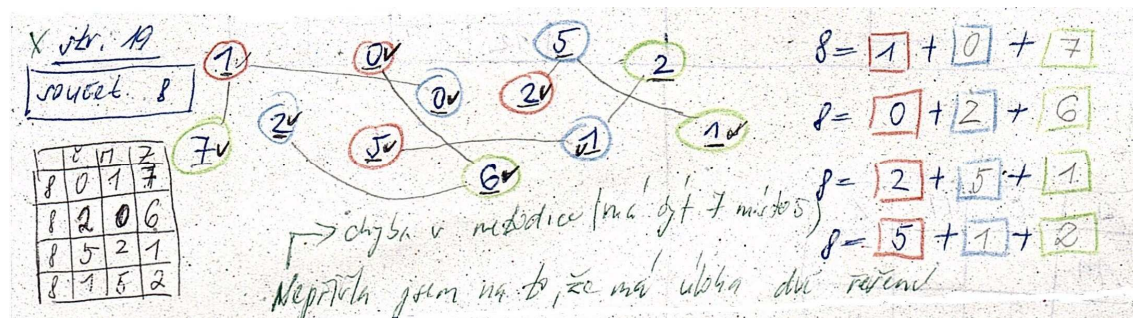 X str. 19
součet 8
1 0 5 2
0 2
2 5 1 1
7 6
č m z
8 0 1 7
8 2 0 6
8 5 2 1
8 1 5 2
8 = 1 + 0 + 7
8 = 0 + 2 + 6
8 = 2 + 5 + 1
8 = 5 + 1 + 2
→ chyba v metodice (má být 7 místo 5)
Nepřišla jsem na to, že má úloha dvě řešení